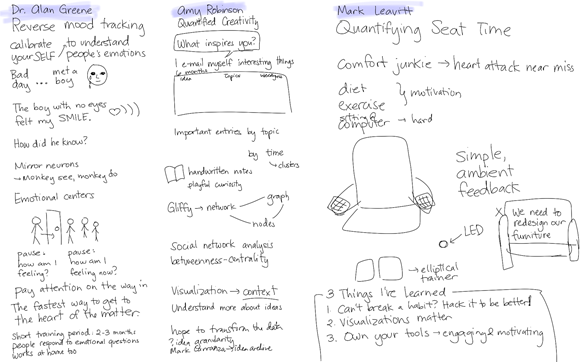 Dr. Alan Greene
Reverse mood tracking
calibrate yourSELF → to understand people's emotions
Bad day ... met a boy
The boy with no eyes
felt my SMILE.
How did he know?
Mirror neurons
→ Monkey see, monkey do
Emotional centers
pause: how am I feeling?
pause: how am I feeling now?
Pay attention on the way in
The fastest way to get
to the heart of the matter.
Short training period: 2-3 months
people respond to emotional questions
works at home too
Amy Robinson
Quantified Creativity
What inspires you?
I e-mail myself interesting things
6 months
Idea Topics
Important entries by topic
by time
→ clusters
handwritten notes
playful curiosity
Gliffy → network
graph
nodes
Social network analysis
betweenness-centrality
Visualization → context
Understand more about ideas
hope to transform the data
? idea granularity
Mark
Mark Leavitt
Quantifying Seat Time
Comfort junkie → heart attack near miss
diet
exercise
} motivation
sitting @
computer → hard
Simple,
ambient
feedback
LED
X
We need to
redesign our
furniture
→ elliptical
trainer
3 Things I've learned
1. Can't break a habit? Hack it to be better!
2. Visualizations matter
3. Own your tools → engaging & motivating